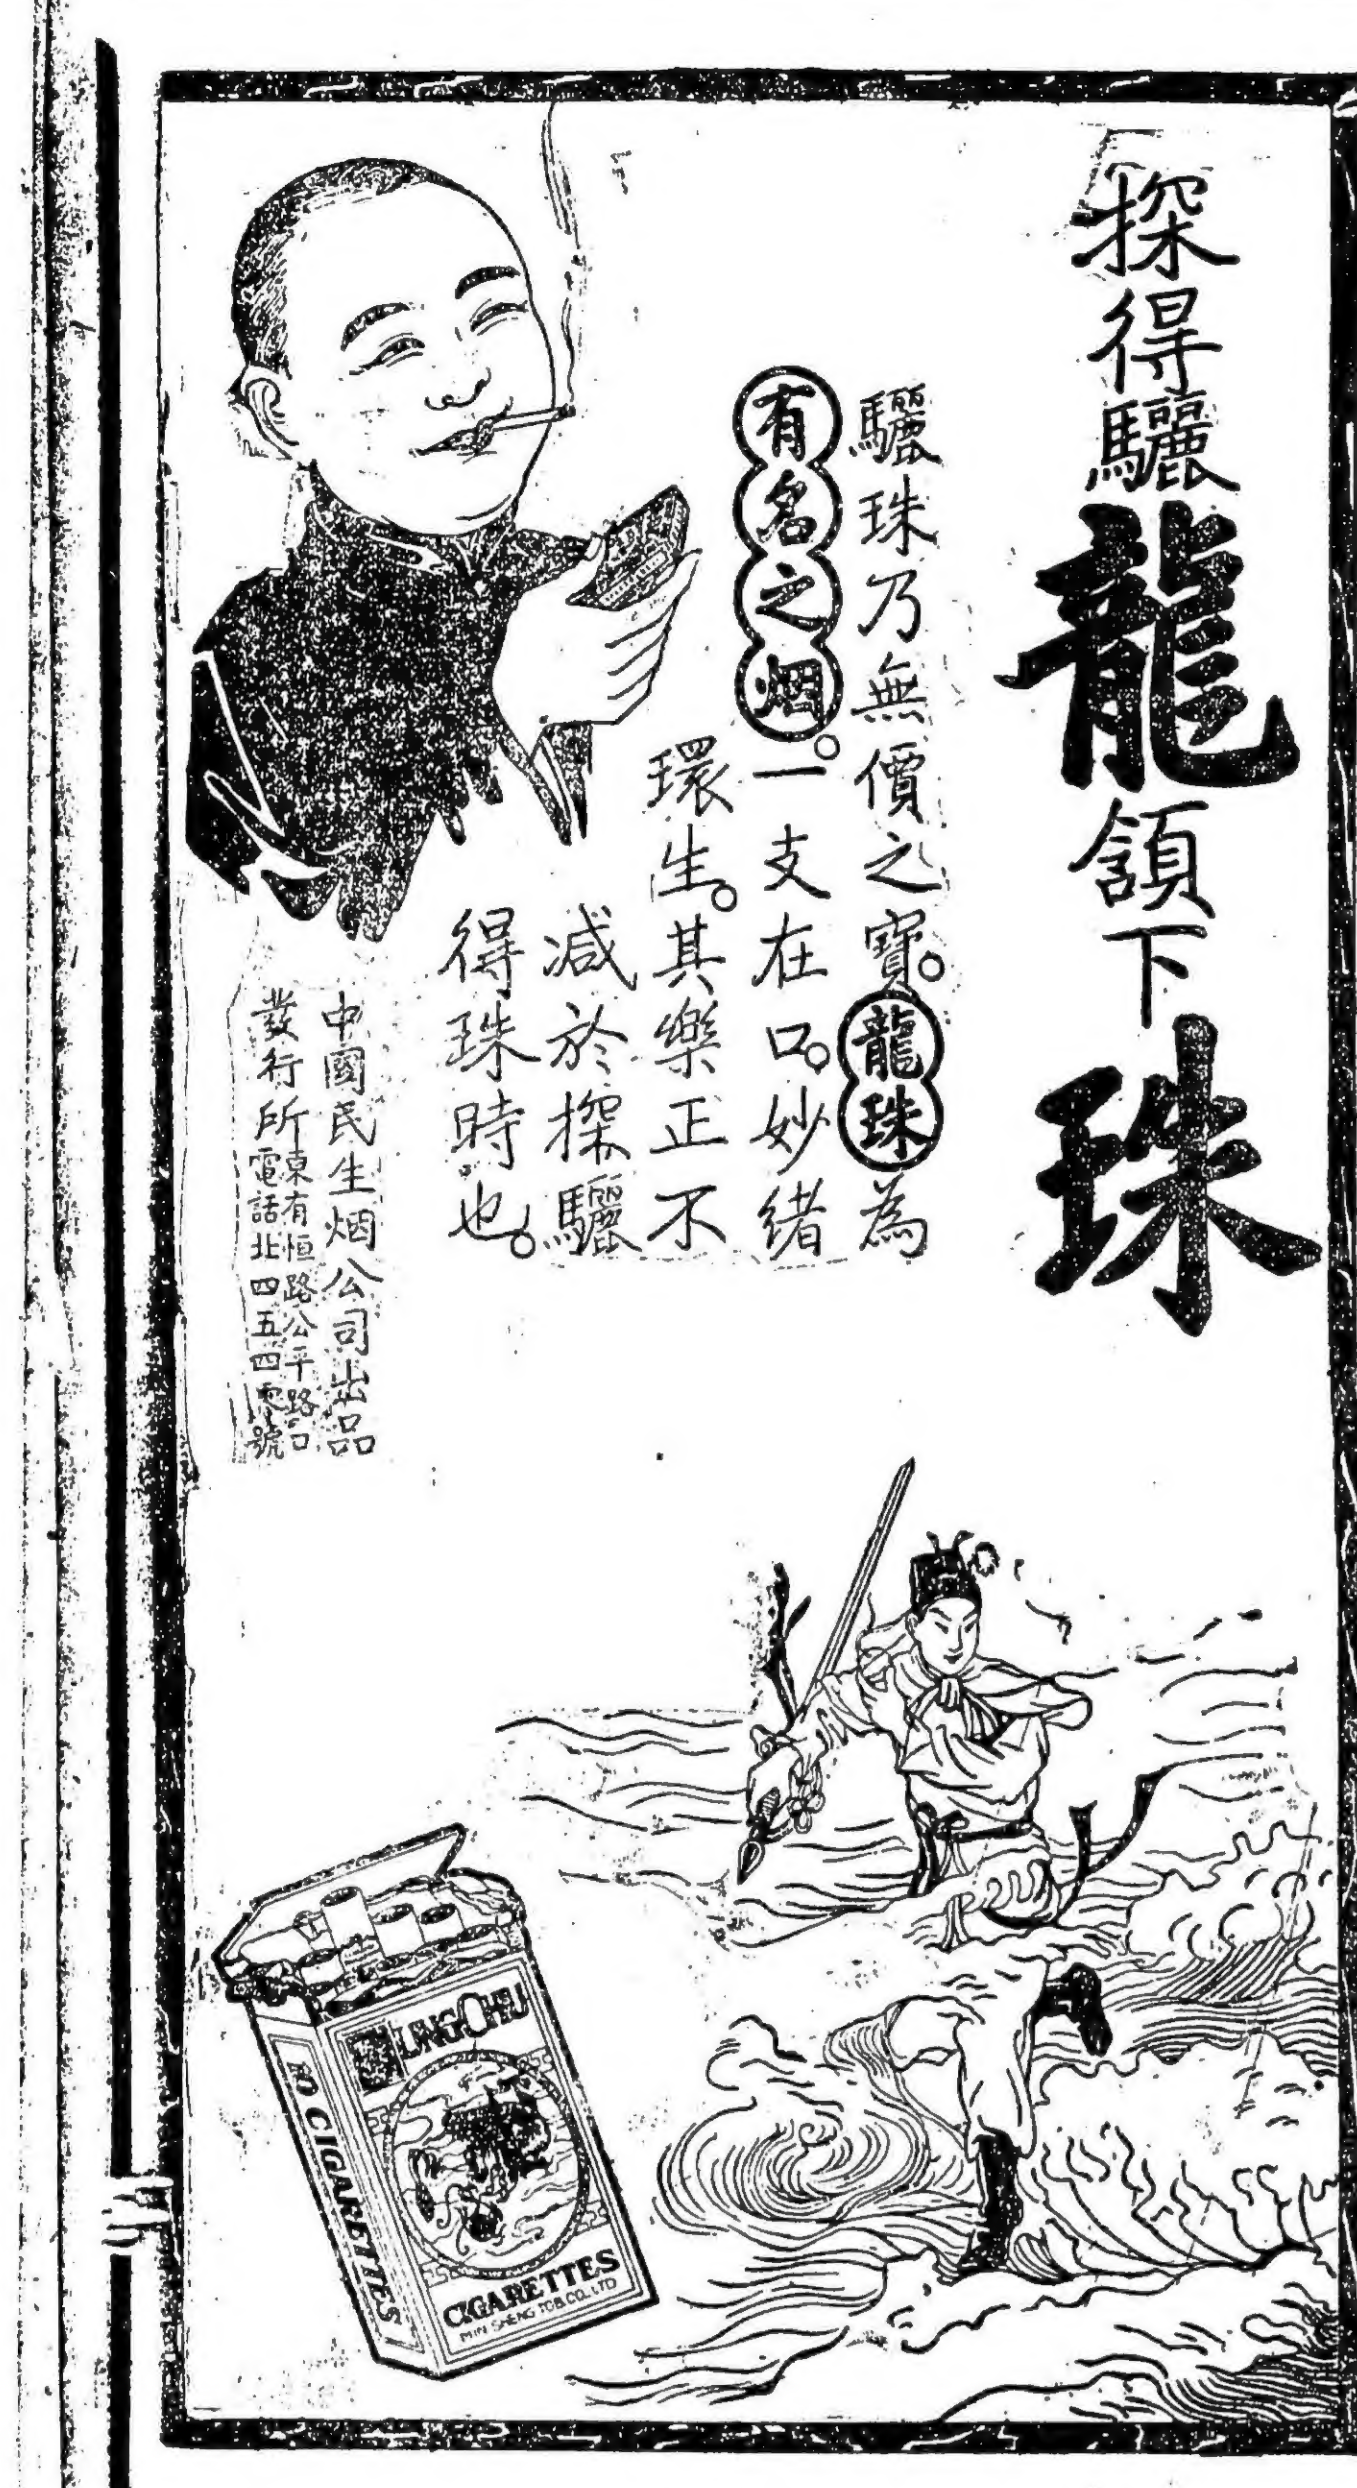 探得驪龍頷下珠
驪珠乃無價之寶。龍珠為
有名之烟。一支在口。妙绪
環生。其樂正不
减於探驪
得珠時也。
中國民生烟公司出品
發行所
東有恒路公平路口
電話北四五四零號
LUNGCHU
10 CIGARETTES
CIGARETTES
MIN SHENG TOB.CO.,LTD